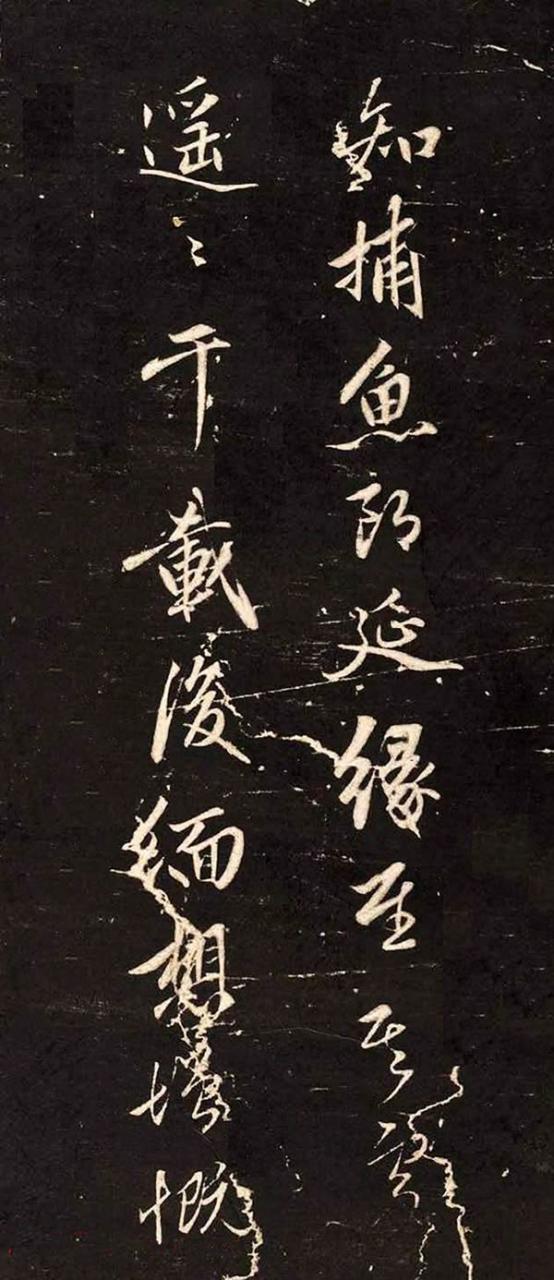 知捕魚郎延緣至其
遥〻千載後緬想增慨